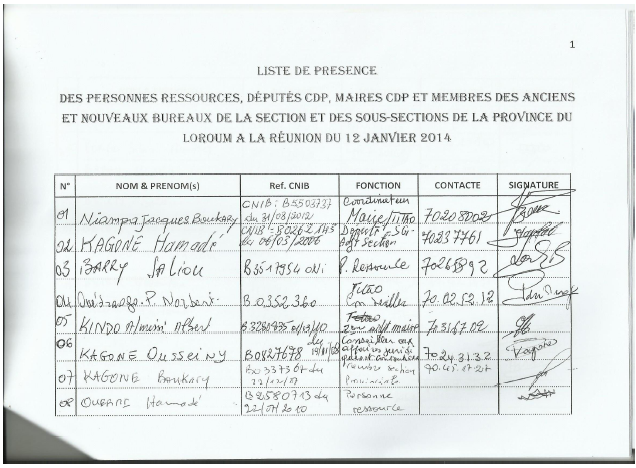 1
LISTE DE PRESENCE
DES PERSONNES RESSOURCES, DÉPUTÉS CDP, MAIRES CDP ET MEMBRES DES ANCIENS
ET NOUVEAUX BUREAUX DE LA SECTION ET DES SOUS-SECTIONS DE LA PROVINCE DU
LOROUM A LA RÉUNION DU 12 JANVIER 2014
N° NOM & PRENOM(s) Ref. CNIB FONCTION CONTACTE SIGNATURE
01 Niampa Jacques Boukary CNIB: B5503737 du 31/03/2012 Coordinateur Maire/Titao 70208002
02 KAGONE Hamadé CNIB: B0262143 du 06/03/2006 Section 70237761
03 BARRY Saliou B3517954 ONI P. Ressource 70265892
04 P. Norbert B0352360 Titao Conseiller 70.02.52.12
05 KINDO Albert maire
06 KAGONE Ousseiny B0827678 Conseiller aux 70 24 31 32
07 KAGONE Boukary du membre section Provinciale
08 Hamadé B2580713 du 22/07/2010 Personne ressource